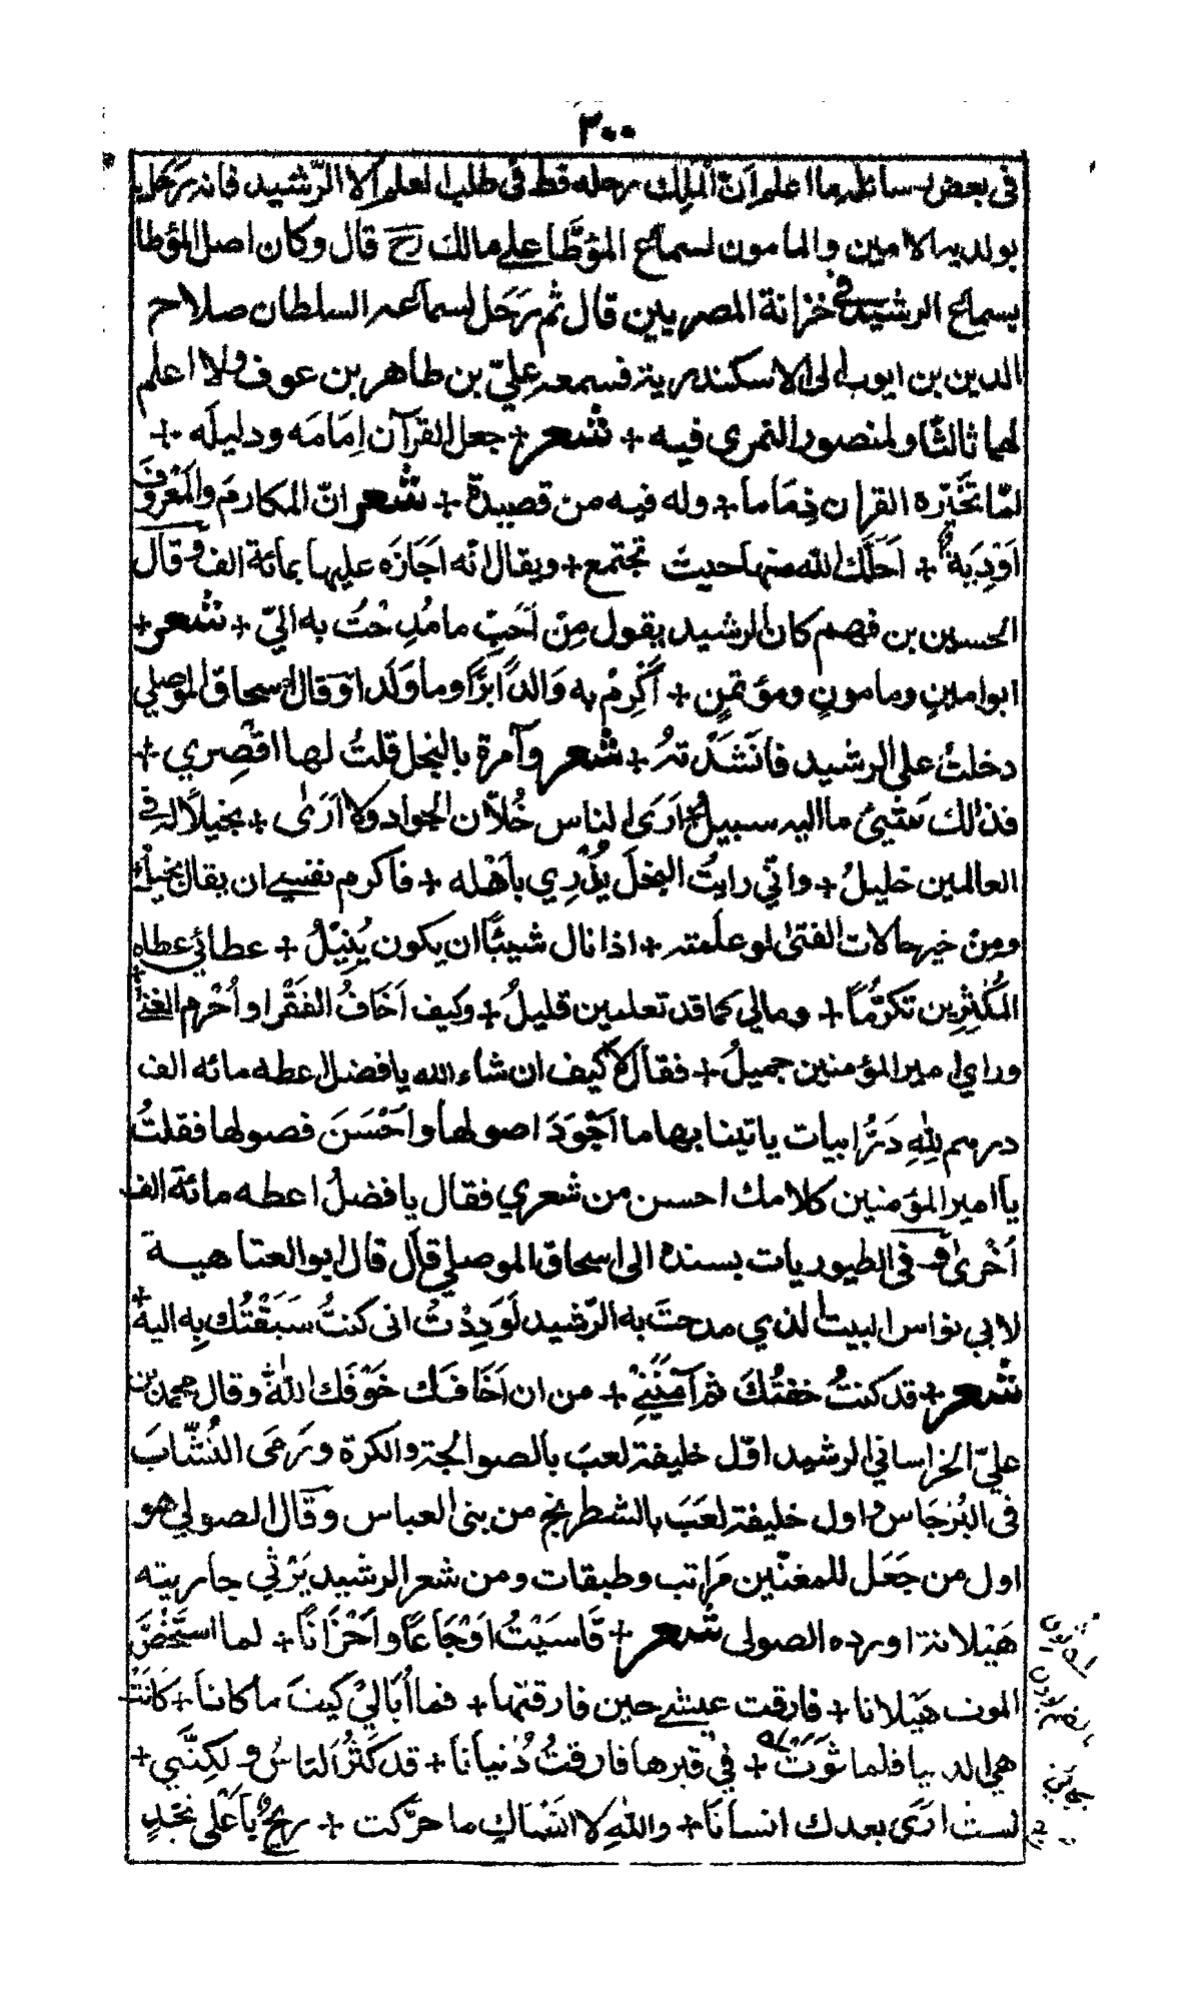 ٣٠٠
في بعض رسائله ما اعلم انّ المَلِك رحله قط في طلب العلم الا الرّشيد فانه رَحَل
بولديه الامين والمامون لسماع المؤطّا علي مالك رح قال وكان اصل المؤطا
بسماع الرشيد في خزانة المصريين قال ثم رَحَل لسماعه السلطان صلاح
الدين بن ايوب الى الاسكندرية فسمعه عليّ بن طاهر بن عوف ولا اعلم
لهما ثالثًا ولمنصور النمرى فيه + شعر + جعل القرآن اِمَامَه ودليلَه +
لمّا تَخَيَّره القران ذِمَامًا + وله فيه من قصيدة + شعر انّ المكارمَ والمَعْرُوفَ
اَوْدِيَةٌ + اَحَلَّكَ الله منها حيث تجتمع + ويقال انّه اَجَازَه عليها بمائة الف وقال
الحسين بن فهم كان الرشيد يقول مِنْ اَحَبِّ ما مُدِحْتُ به اليّ + شعر +
ابو امينٍ ومامونٍ ومؤتمنٍ + اَكْرِمْ به وَالدًا بَرًّا وما وَلَدا وَقال اسحاق الموصلي
دخلتُ على الرشيد فانَشَدْتهُ + شعر وآمرة بالبخل قلتُ لها اقصِري +
فذالك شيئ ما اليه سبيل + اَرَى الناس خُلّان الجواد ولا اَرَى + بخيلًا له في
العالمين خليلُ + واني رايتُ البخلَ يُزْرِي باَهْله + فاكرم نفسي ان يقال بخيل
ومِنْ خير حالات الفتى لو علمته + اذا نال شيئًا ان يكون يُنِيْلُ + عطائي عطاء
المُكْثِرِين تكرّمًا + ومالي كما قد تعلمين قليلُ + وكيف اَخَافُ الفَقْرَ او اُحْرم الغِنى +
وراي امير المؤمنين جميلُ + فقال لا كيف ان شاء الله يا فضل اعطه مائه الف
درهم لِلّهِ دَرُّ ابيات ياتينا بها ما اَجْوَدَ اصولها واَحْسَنَ فصولها فقلتُ
يا امير المؤمنين كلامك احسن من شعري فقال يا فضلُ اعطه مائة الف
اَخْرىٰ و فى الطيوريات بسنده الى اسحاق الموصلي قال قال ابو العتاهية
لابي نواس البيت الذي مدحتَ به الرّشيد لَوَدِدْتُ انى كنتُ سَبَقْتُك بِه اليه +
شعر + قد كنتُ خفتُكَ ثم آمَنَنِيْ + من ان اَخَافَك خَوْفَك اللهَ وقال محمد بن
عليّ الخراساني الرشيد اوّل خليفة لعب بالصوالجة والكرة ورَمَى النُشّابَ
فى البُرْجَاس و اول خليفة لعَبَ بالشطرنج من بنى العباس وقال الصولي هو
اول من جَعَل للمغنّين مَراتب وطبقات ومن شعر الرشيد يَرْثي جاريته
هَيْلانة اورده الصولى شعر + قَاسَيْتُ اَوْجَاعًا واَحْزَانًا + لما استَخَصَّ
الموت هَيْلانا + فارقت عيشي حين فارقتها + فما اُبَاليْ كيفَ ما كانا + كانَتْ
هي الدنيا فلما ثَوَتْ + في قبرها فارقتُ دُنيانا + قد كَثُرَ الناسُ ولكِنَّني +
لستُ ارَى بعدك انسانًا + واللّهِ لا انسَاكِ ما حرَّكت + ريحٌ يا َعْلى نَجْدٍ